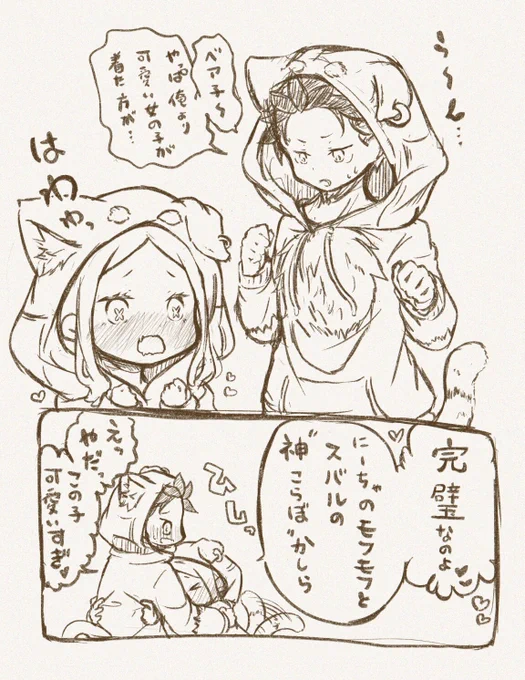 う〜ん…
ベア子〜
やっぱ俺より
可愛い女の子が
着た方が…
はわわっ
完璧なのよ
にーちゃのモフモフと
スバルの
神"こらぼ"かしら
ひしっ
えっ
やだっ
この子
可愛いすぎ